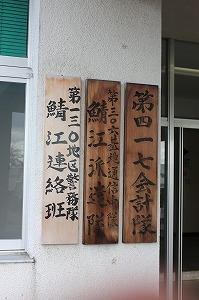 第四一七会計隊
第三〇六基地通信中隊
鯖江派遣隊
第一三〇地区警務隊
鯖江連絡班